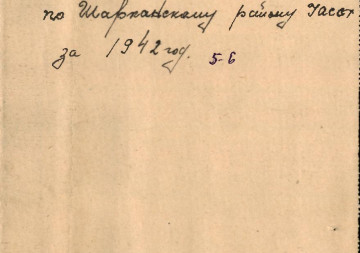 по Шарканскому району
за 1942 год. 5-6